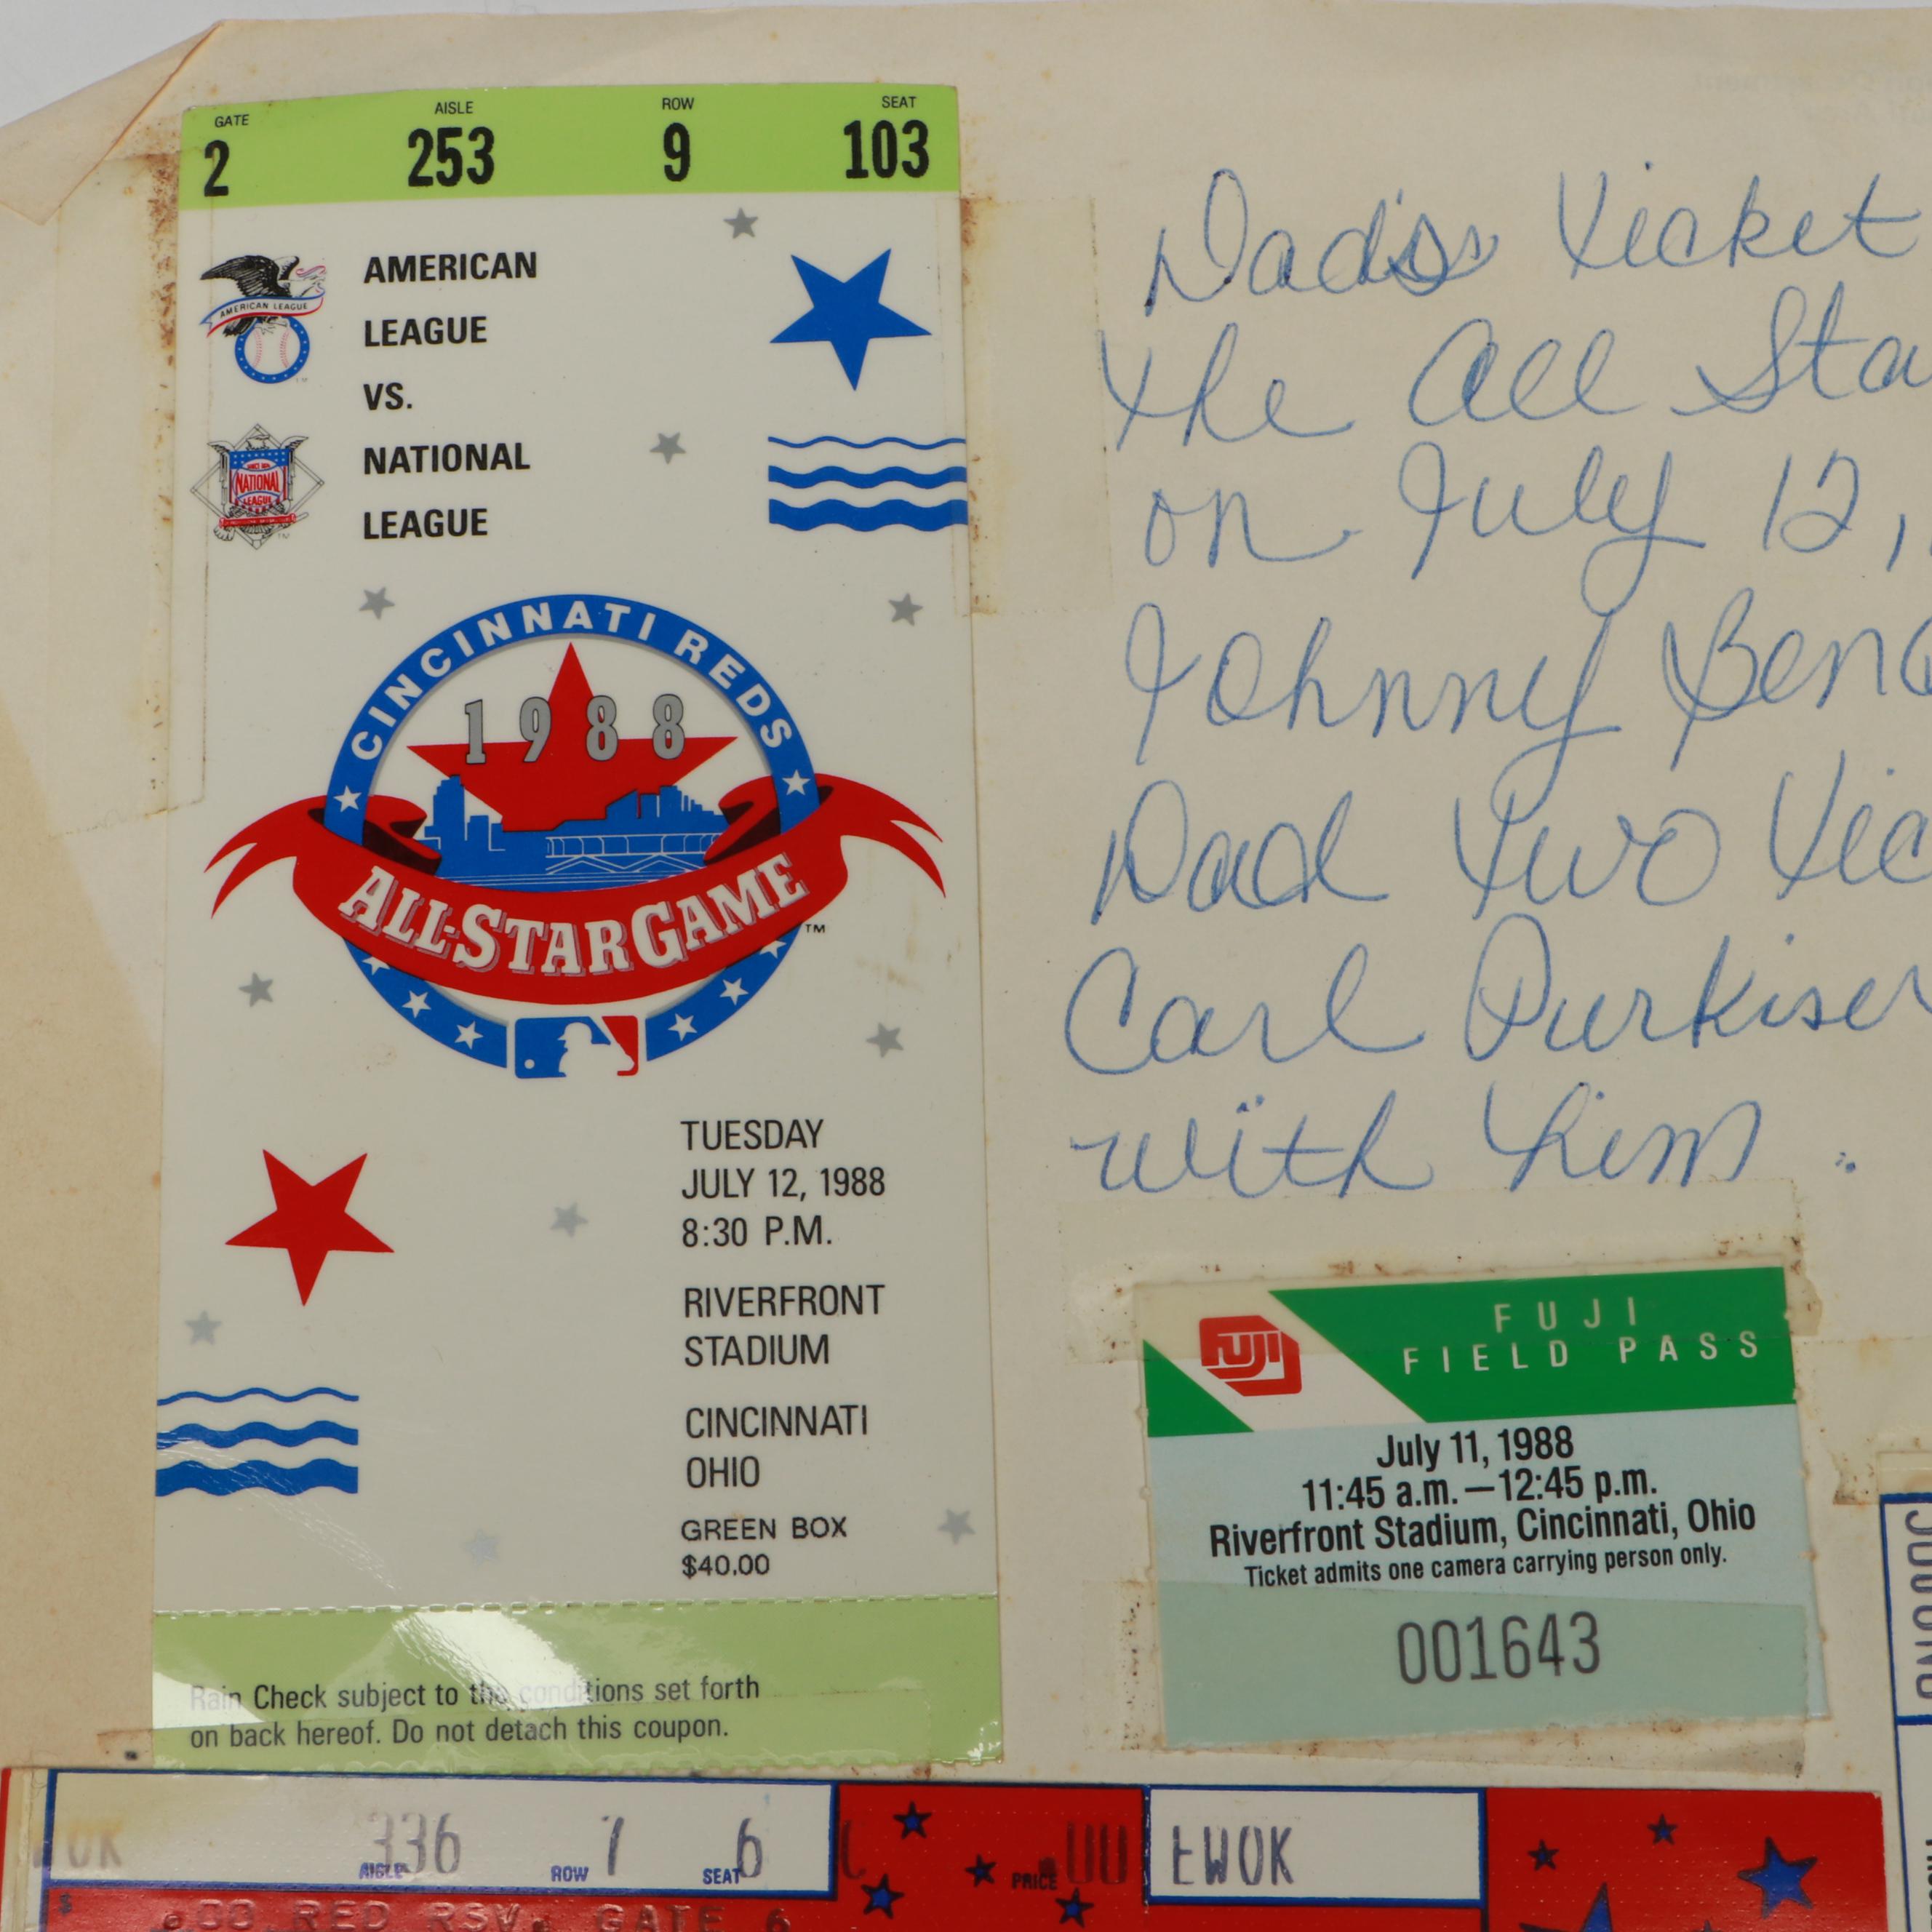 GATE AISLE ROW SEAT
2 253 9 103
AMERICAN
LEAGUE
VS.
NATIONAL
LEAGUE
AMERICAN LEAGUE
NATIONAL
LEAGUE
CINCINNATI REDS
1988
ALL-STAR GAME
TM
TUESDAY
JULY 12, 1988
8:30 P.M.
RIVERFRONT
STADIUM
CINCINNATI
OHIO
GREEN BOX
$40.00
Rain Check subject to the conditions set forth
on back hereof. Do not detach this coupon.
Dad's Ticket
the All Sta
on July 12,
Johnny Benc
Dad two tic
Carl Purkiser
with him.
FUJI
FUJI
FIELD PASS
July 11, 1988
11:45 a.m.—12:45 p.m.
Riverfront Stadium, Cincinnati, Ohio
Ticket admits one camera carrying person only.
001643
336 7 6
AISLE ROW SEAT PRICE
EWOK
.00 RED RSV. GATE 6